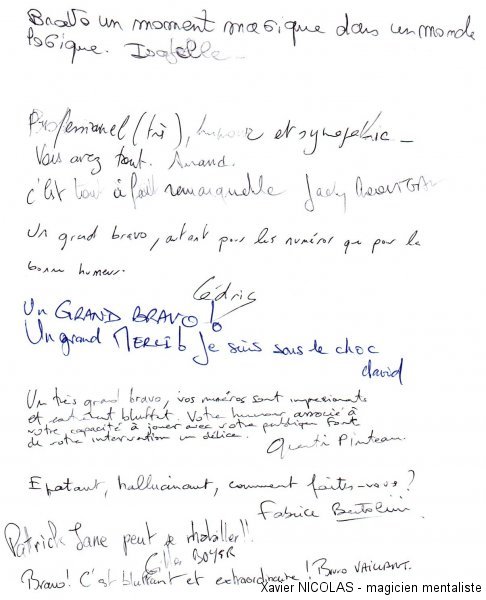 Bravo un moment magique dans un monde
logique. Isabelle
Professionnel (très), humour et sympathie
Vous avez tout. Arnaud.
C'est tout à fait remarquable Jacky
Un grand bravo, autant pour les numéros que pour la
bonne humeur.
Cédric
Un GRAND BRAVO!
Un grand MERCI! Je suis sous le choc
david
Un très grand bravo, vos numéros sont impressionants
et bluffant. Votre humour associé à
votre capacité à jouer avec votre publique font
de votre intervention un délice.
Quentin Pinteau
Epatant, hallucinant, comment faites-vous?
Fabrice Bertolini
Patrick Jane peut se rhabiller!!
Gilles BOYER
Bravo! C'est bluffant et extraordinaire! Bruno VAILLANT.
Xavier NICOLAS - magicien mentaliste